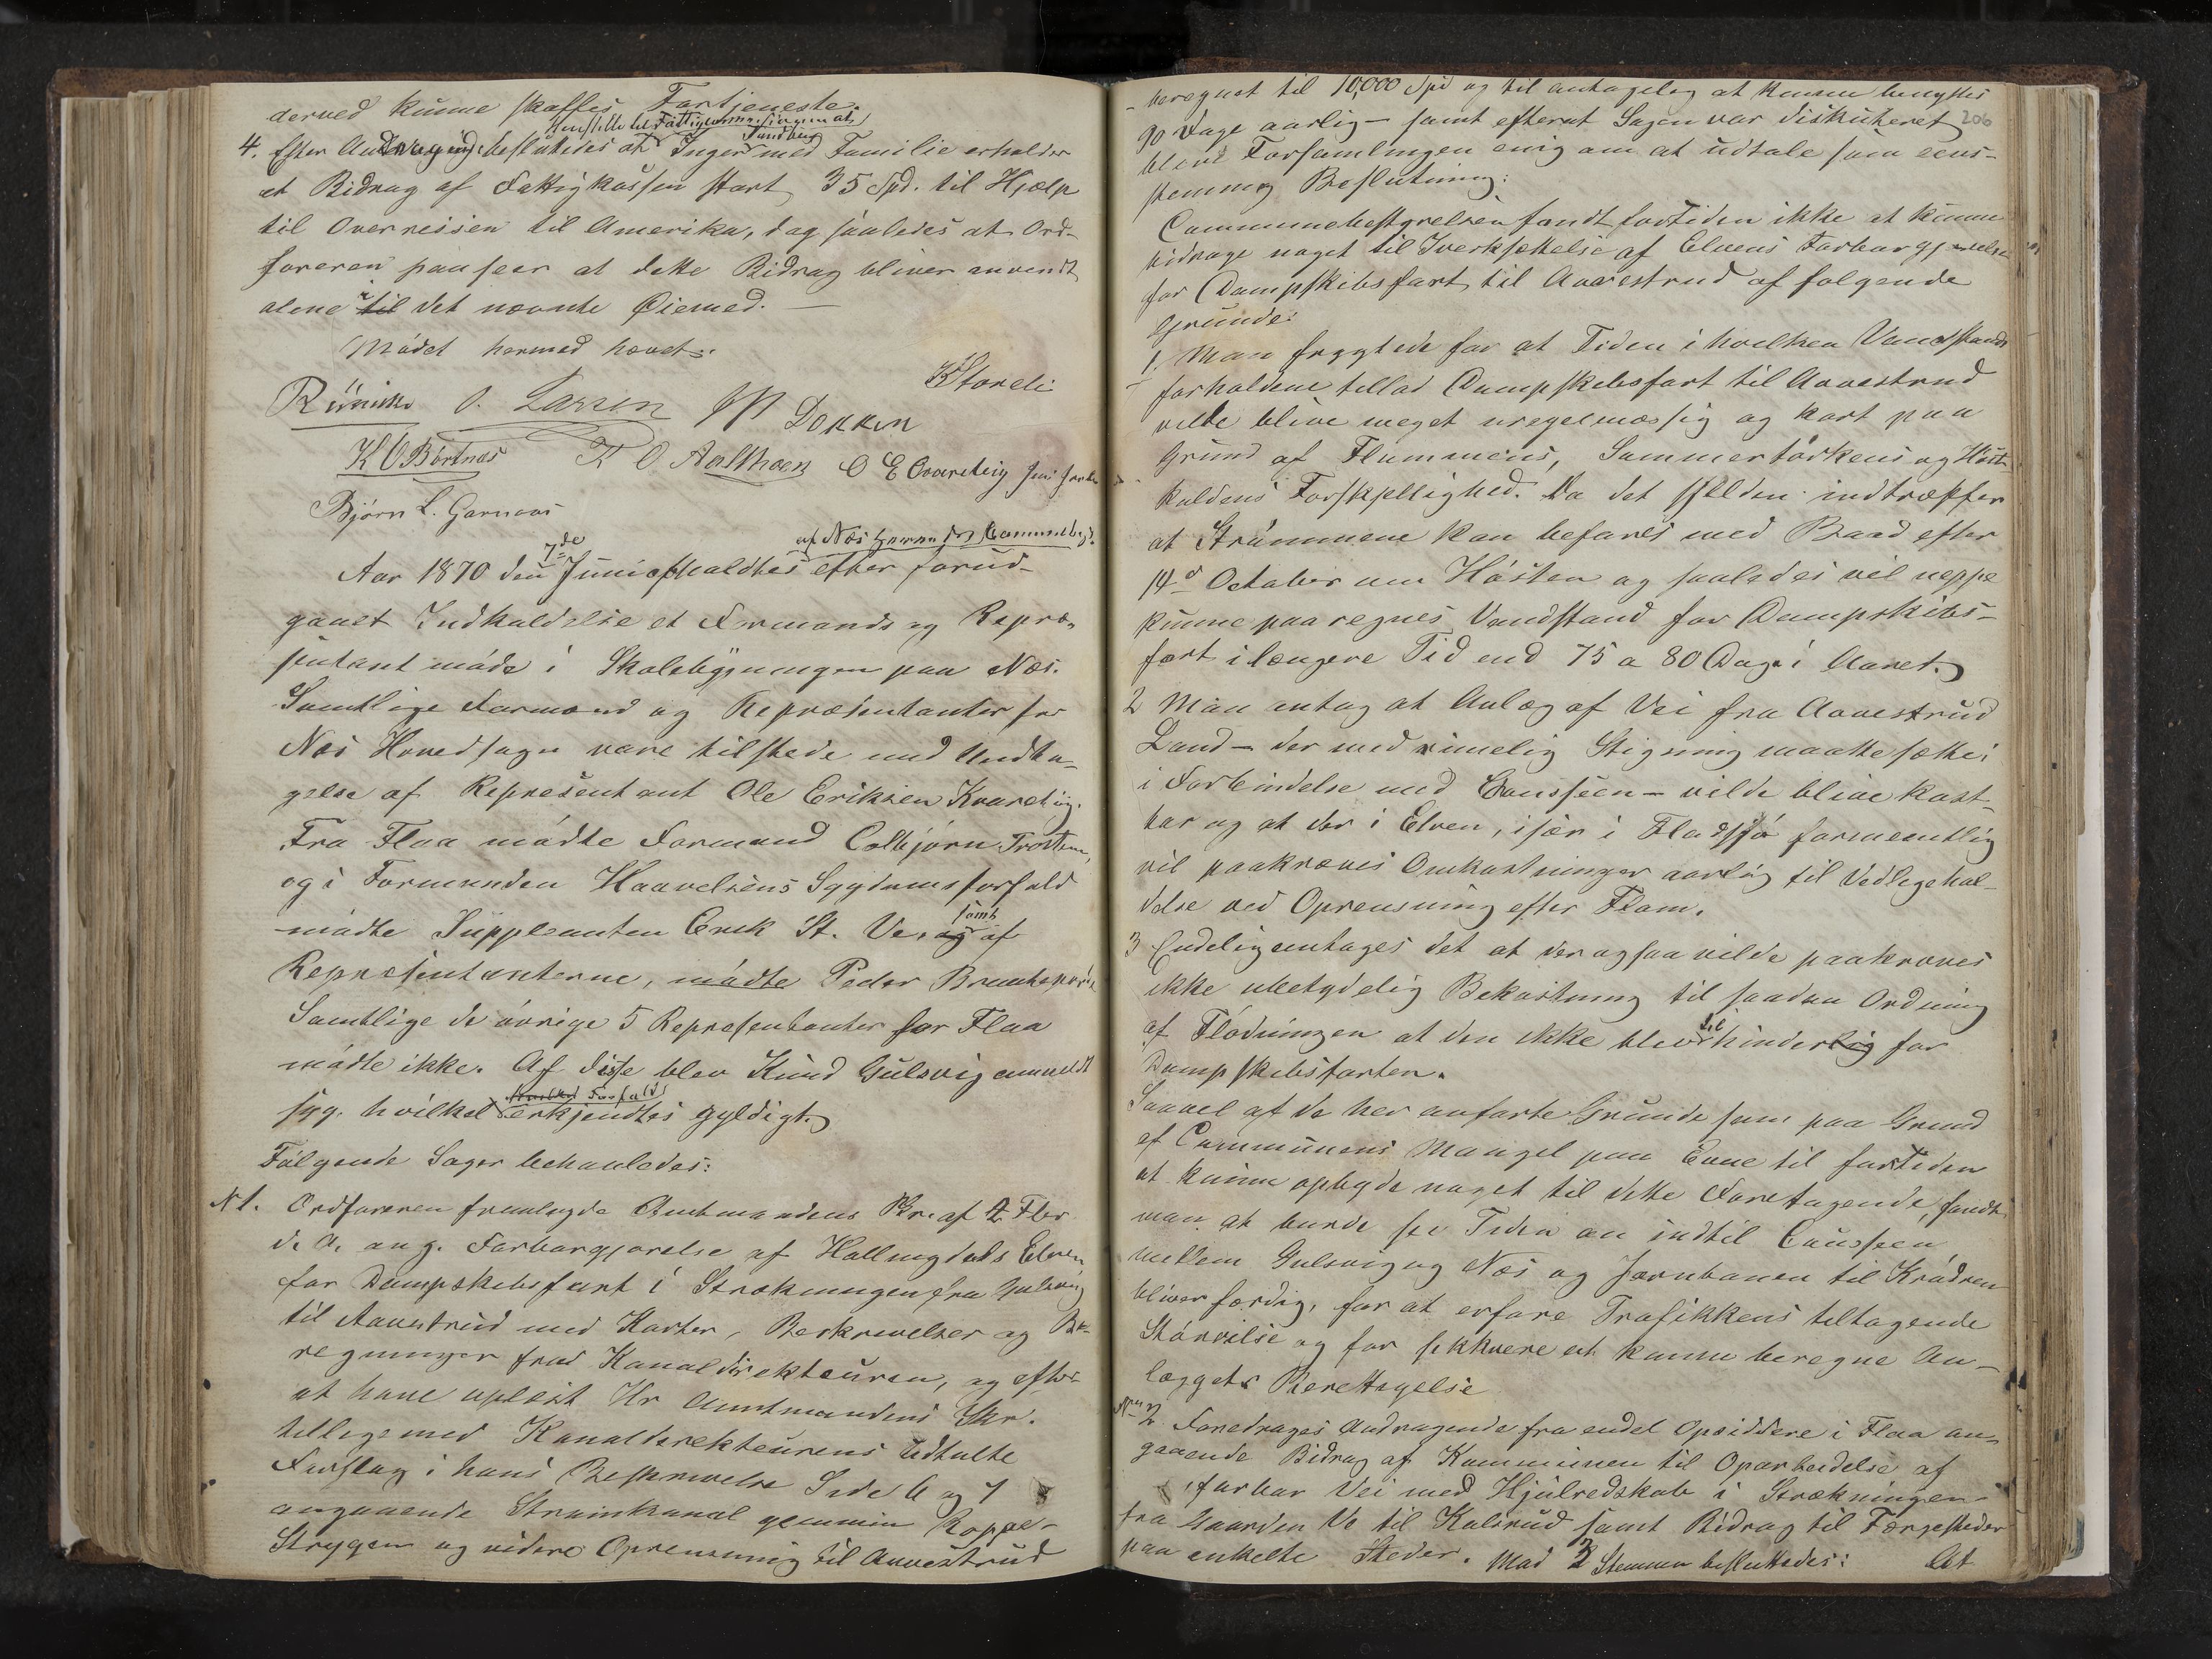 derved kunne skaffes Fortjeneste.
henstille til Fattigkommissionen at
4. Efter Andragende besluttedes at Inger Sundbøy med Familie erholder
et Bidrag af Fattigkassen stort 35 Spd. til Hjælp
til Overreisen til Amerika, dog saaledes at Ord-
føreren paaseer at dette Bidrag bliver anvendt
alene i til det nævnte Øiemed. —
Mødet hermed hævet.
KStoveli
O. Larsen Dokken
K O Børtnæs K O Aalkoen O E Qvareteig
Bjørn L. Garnaas
Aar 1870 den 7de Juni afholdtes af Næs Herreds Communebest. efter forud-
gaaet Indkaldelse et Formands og Repræ-
sentantmøde i Skolebygningen paa Næs.
Samtlige Formænd og Repræsentanter for
Næs Hovedsogn vare tilstede med Undta-
gelse af Repræsentant Ole Eriksen Kvareteig.
Fra Flaa mødte Formand Colbjørn Trostem,
og i Formanden Haavelsens Sygdomsforfald
mødte Suppleanten Erik St. Ve, og samt af
Repræsentanterne, mødte Peder
Samtlige de øvrige 5 Repræsentanter for Flaa
mødte ikke. Af disse blev Knud Gulsvig anmeldt
syg. hvilket Forfald erkjendtes gyldigt.
Følgende Sager behandledes:
N 1. Ordføreren fremlagde Amtmandens Skr. af 2 Febr
d. A. ang. Farbargjørelse af Hallingdals Elven
for Dampskibsfart i Strækningen fra Gulsvig
til Aavestrud med Karter, Beskrivelser og Be-
regninger fra Kanaldirekteuren, og efter
at have oplæst Hr Amtmandens Skr.
tilligemed Kanaldirekteurens udtalte
Forslag i hans Beskrivelse Side 6 og 7
angaaende Strømkanal gjennem Roppe-
Strygen og videre Oprensning til Aavestrud
206
beregnet til 10,000 Spd og til antagelig at kunne benyttes
90 Dage aarlig — samt efterat Sagen var diskuteret
blev Forsamlingen enig om at udtale som eens-
stemmig Beslutning:
Communebestyrelsen fandt fortiden ikke at kunne
bidrage noget til Iverksættelse af Elvens Farbargjørelse
for Dampskibsfart til Aavestrud af følgende
Grunde:
1. Man frygtede for at Tiden i hvilken Vandstands
forholdene tillod Dampskibsfart til Aavestrud
vilde blive meget uregelmæssig og kort paa
Grund af Flommens, Sommertørkens og Høst-
kuldens Forskjellighed. Da det sjelden indtræffer
at Strømmene kan befares med Baad efter
14d October om Høsten og saaledes vil neppe
kunne paaregnes Vandstand for Dampskibs-
fart i længere Tid end 75 a 80 Dage i Aaret.
2 Man antog at Anlæg af Vei fra Aavestrud
Land — der med rimelig Stigning maatte sættes
i Forbindelse med Causseen — vilde blive kost-
bar og at der i Elven, især i Fladsjø formentlig
vil paakræves Omkostninger aarlig til Vedligehol-
delse ved Oprensning efter Flom.
3 Endelig antages det at der ogsaa vilde paakræves
ikke ubetydelig Bekostning til saadan Ordning
af Flødningen at den ikke blev til hinderlig for
Dampskibsfarten.
Saavel af de her anførte Grunde som paa Grund
af Communens Mangel paa Evne til fortiden
at kunne opbyde noget til dette Foretagende, fandt
man at burde see Tiden an indtil Causseen
mellem Gulsvig og Næs og Jernbanen til Krødren
bliver færdig, for at erfare Trafikkens tiltagende
Størrelse og for sikkrere at kunne beregne An-
læggets Berettigelse
No 2. Foredroges Andragende fra endel Opsiddere i Flaa an-
gaaende Bidrag af Kommunen til Oparbeidelse af
farbar Vei med Hjulredskab i Strækningen
fra Gaarden Ve til Kolsrud samt Bidrag til Færgesteder
paa enkelte Steder. Mod 3 Stemmer besluttedes: At